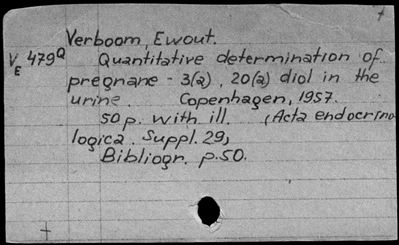 Verboom, Ewout.
VE 479Q Quantitative determination of
pregnane - 3(a), 20(a) diol in the
urine. Copenhagen, 1957.
50 p. with ill. (Acta endocrino
logica. Suppl. 29)
Bibliogr. p. 50.